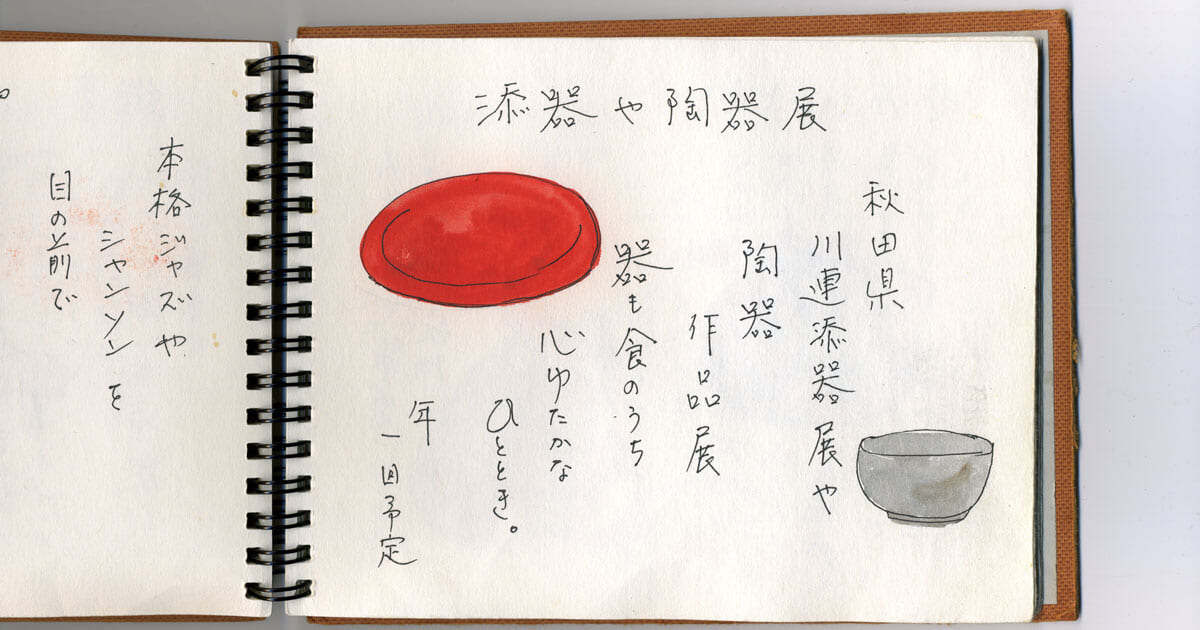 添器や陶器展
秋田県
川連添器展や
陶器
作品展
器も食のうち
心ゆたかな
ひととき。
年
一回予定
本格ジャズや
シャンソンを
目の前で